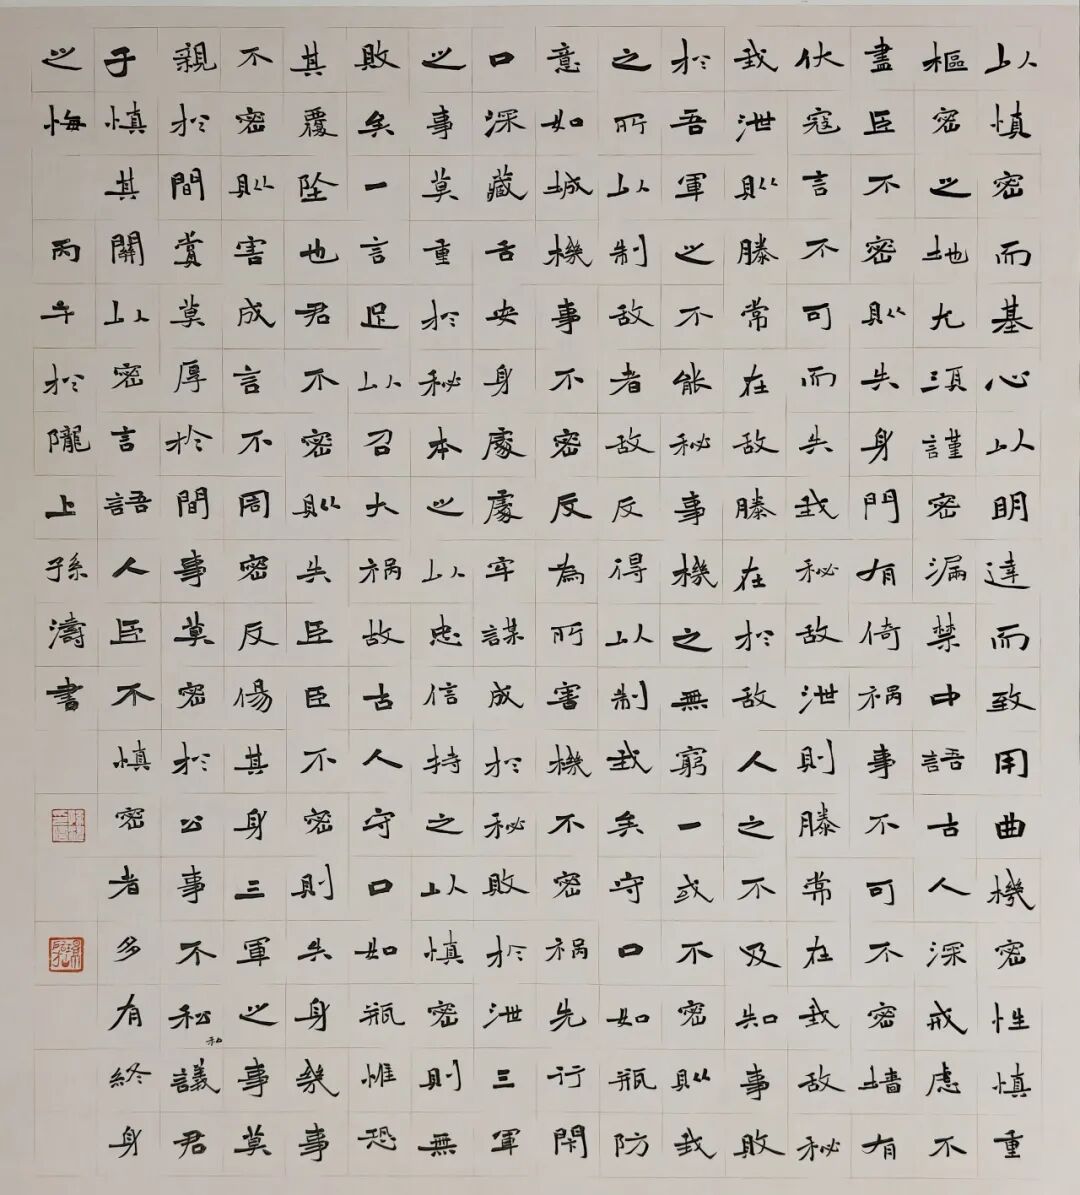 以慎密而基心以明達而致用曲機密性慎重
樞密之地尤須謹密漏禁中語古人深戒慮不
盡臣不密則失身門有倚禍事不可不密墙有
伏寇言不可而失我秘敌泄則勝常在我敌秘
我泄則勝常在敌勝在於敌人之不及知事敗
於吾軍之不能秘事機之無窮一或不密則我
之所以制敌者敌反得以制我矣守口如瓶防
意如城機事不密反為所害機不密禍先行閑
口深藏舌安身處處牢謀成於秘敗於泄三軍
之事莫重於秘本之以忠信持之以慎密則無
敗矣一言足以召大禍故古人守口如瓶惟恐
其覆坠也君不密則失臣臣不密則失身幾事
不密則害成言不周密反傷其身三軍之事莫
親於間賞莫厚於間事莫密於公事不私議君
子慎其關以密言語人臣不慎密者多有終身
之悔 丙午於隴上孫濤書